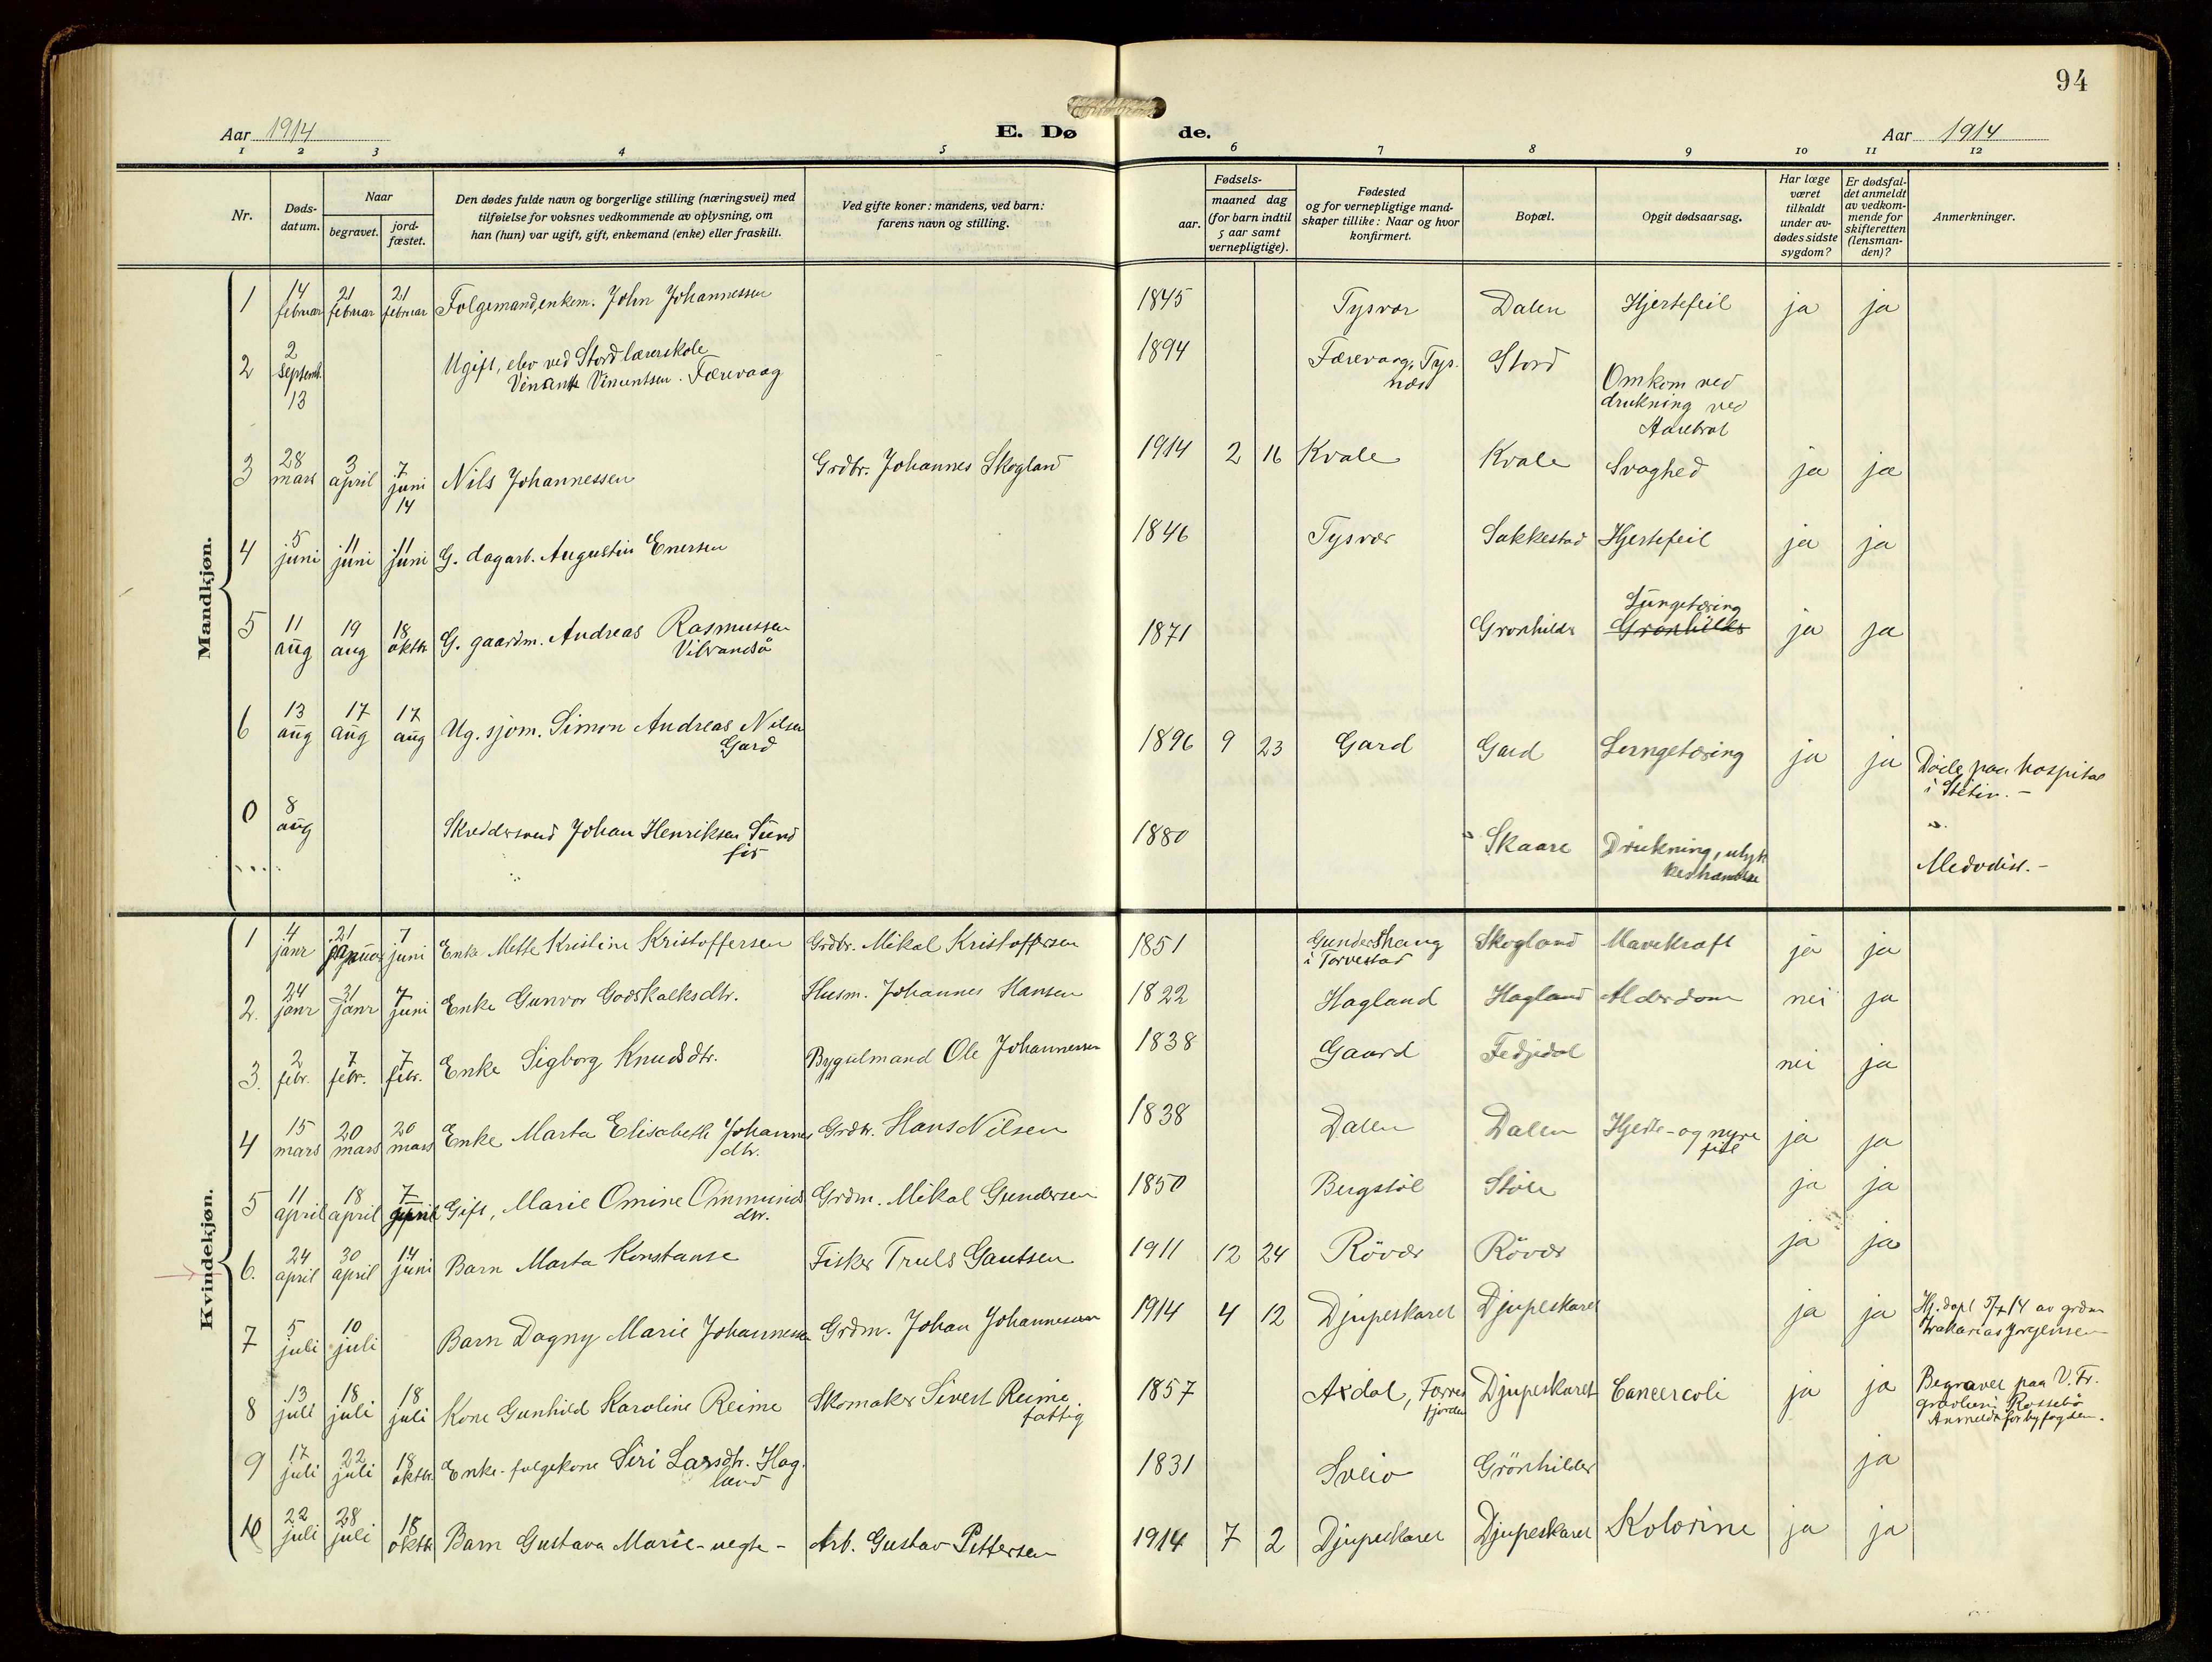 94
Aar 1914
E. Dø
de.
Aar 1914
1 2 3 4 5 6 7 8 9 10 11 12
Nr.
Døds-
datum.
Naar
begravet.
jord-
fæstet.
Den dødes fulde navn og borgerlige stilling (næringsvei) med
tilføielse for voksnes vedkommende av oplysning, om
han (hun) var ugift, gift, enkemand (enke) eller fraskilt.
Ved gifte koner: mandens, ved barn:
farens navn og stilling.
Fødsels-
aar.
maaned dag
(for barn indtil
5 aar samt
vernepligtige).
Fødested
og for vernepligtige mand-
skaper tillike: Naar og hvor
konfirmert.
Bopæl.
Opgit dødsaarsag.
Har læge
været
tilkaldt
under av-
dødes sidste
sygdom?
Er dødsfal-
det anmeldt
av vedkom-
mende for
skifteretten
(lensman-
den)?
Anmerkninger.
Mandkjøn.
1 14 februar 21 februar 21 februar Folgemand, enkem. John Johannessen 1845 Tysvær Dalen Hjertefeil ja ja
2 2 septemb. 13 Ugift, elev ved Stord lærerskole
Vincents Vincentsen Færevaag 1894 Færevaag, Tys-
næs Stord Omkom ved
drukning ved
3 28 mars 3 april 7 juni 14 Nils Johannessen Grdbr. Johannes Skogland 1914 2 16 Kvale Kvale Svaghed ja ja
4 5 juni 11 juni 11 juni G. dagarb. Augustin Enersen 1846 Tysvær Sakkestad Hjertefeil ja ja
5 11 aug 19 aug 18 oktbr G. gaardm. Andreas Rasmussen
Vibrandsö 1871 Grønhilder Lungetæring
Grønhilder ja ja
6 13 aug 17 aug 17 aug Ug. sjøm. Simon Andreas Nilsen
Gard 1896 9 23 Gard Gard Lungetæring ja ja Døde paa hospital
i Stetin. -
0 8 aug Skreddersvend Johan Henriksen Sund
før 1880 Skaare Drukning, ulyk-
keshændelse Metodist. -
Kvindekjøn.
1 4 janr 21 januar 7 juni Enke Mette Kristine Kristoffersen Grdbr. Mikal Kristoffersen 1851 Gundershaug
i Torvestad Skogland Mavekræft ja ja
2. 24 janr 31 janr 7 juni Enke Gunvor Godskalksdtr. Husm. Johannes Hansen 1822 Hagland Hagland Alderdom nei ja
3. 2 febr. 7 febr. 7 febr. Enke Sigborg Knudsdtr. Bygselmand Ole Johannessen 1838 Gaard Fedjedal nei ja
4 15 mars 20 mars 20 mars Enke Marta Elisabeth Johannes
dtr. Grdbr. Hans Nilsen 1838 Dalen Dalen Hjerte- og nyre
feil ja ja
5 11 april 18 april 7 april Gift, Marie Omine Ommunds
dtr. Grdm. Mikal Gundersen 1850 Bergstöl Støle ja ja
6. 24 april 30 april 14 juni Barn Marta Konstanse Fisker Truls Gautsen 1911 12 24 Rövær Rövær ja ja
7 5 juli 10 juli Barn Dagny Marie Johannessen Grdm. Johan Johannessen 1914 4 12 Djupeskaret Djupeskaret ja ja Hj.døpt 5/7 14 av grdm
Zakarias Jørgensen
8 13 juli 18 juli 18 juli Kone Gunhild Karoline Reime Skomaker Sivert Reime
fattig 1857 Axdal, Førres
fjorden Djupeskaret Cancercoli ja ja Begravet paa V. Fr.
gravlund Rossebø
Anmeldt for byfogden.
9 17 juli 22 juli 18 oktbr. Enke-folgekone Siri Larsdtr. Hag-
land 1831 Sveio Grönhilder ja
10 22 juli 28 juli 18 oktbr Barn Gustava Marie - uegte - Arb. Gustav Pettersen 1914 7 2 Djupeskaret Djupeskaret Kolerine ja ja